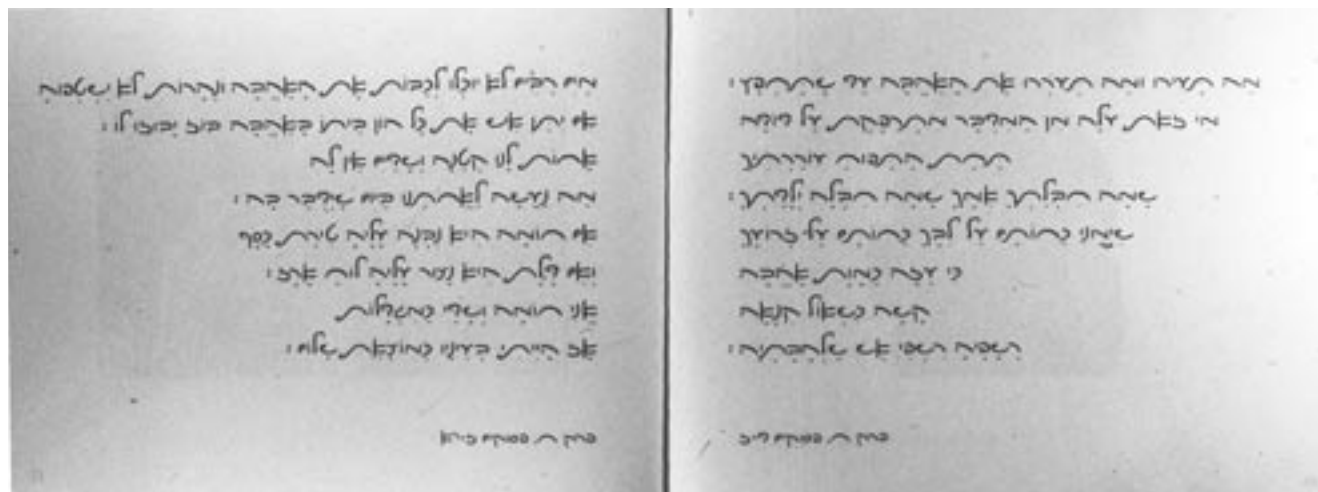 מה תעירו ומה תעררו את האהבה עד שתחפץ:
מי זאת עלה מן המדבר מתרפקת על דודה
תחת התפוח עוררתיך
שמה חבלתך אמך שמה חבלה ילדתך:
שימני כחותם על לבך כחותם על זרועך
כי עזה כמות אהבה
קשה כשאול קנאה
רשפיה רשפי אש שלהבתיה:
פרק ח פסוקים ד־ז
מים רבים לא יוכלו לכבות את האהבה ונהרות לא ישטפוה
אם יתן איש את כל הון ביתו באהבה בוז יבוזו לו:
אחות לנו קטנה ושדים אין לה
מה נעשה לאחתנו ביום שידבר בה:
אם חומה היא נבנה עליה טירת כסף
ואם דלת היא נצור עליה לוח ארז:
אני חומה ושדי כמגדלות
אז הייתי בעיניו כמוצאת שלום:
פרק ח פסוקים